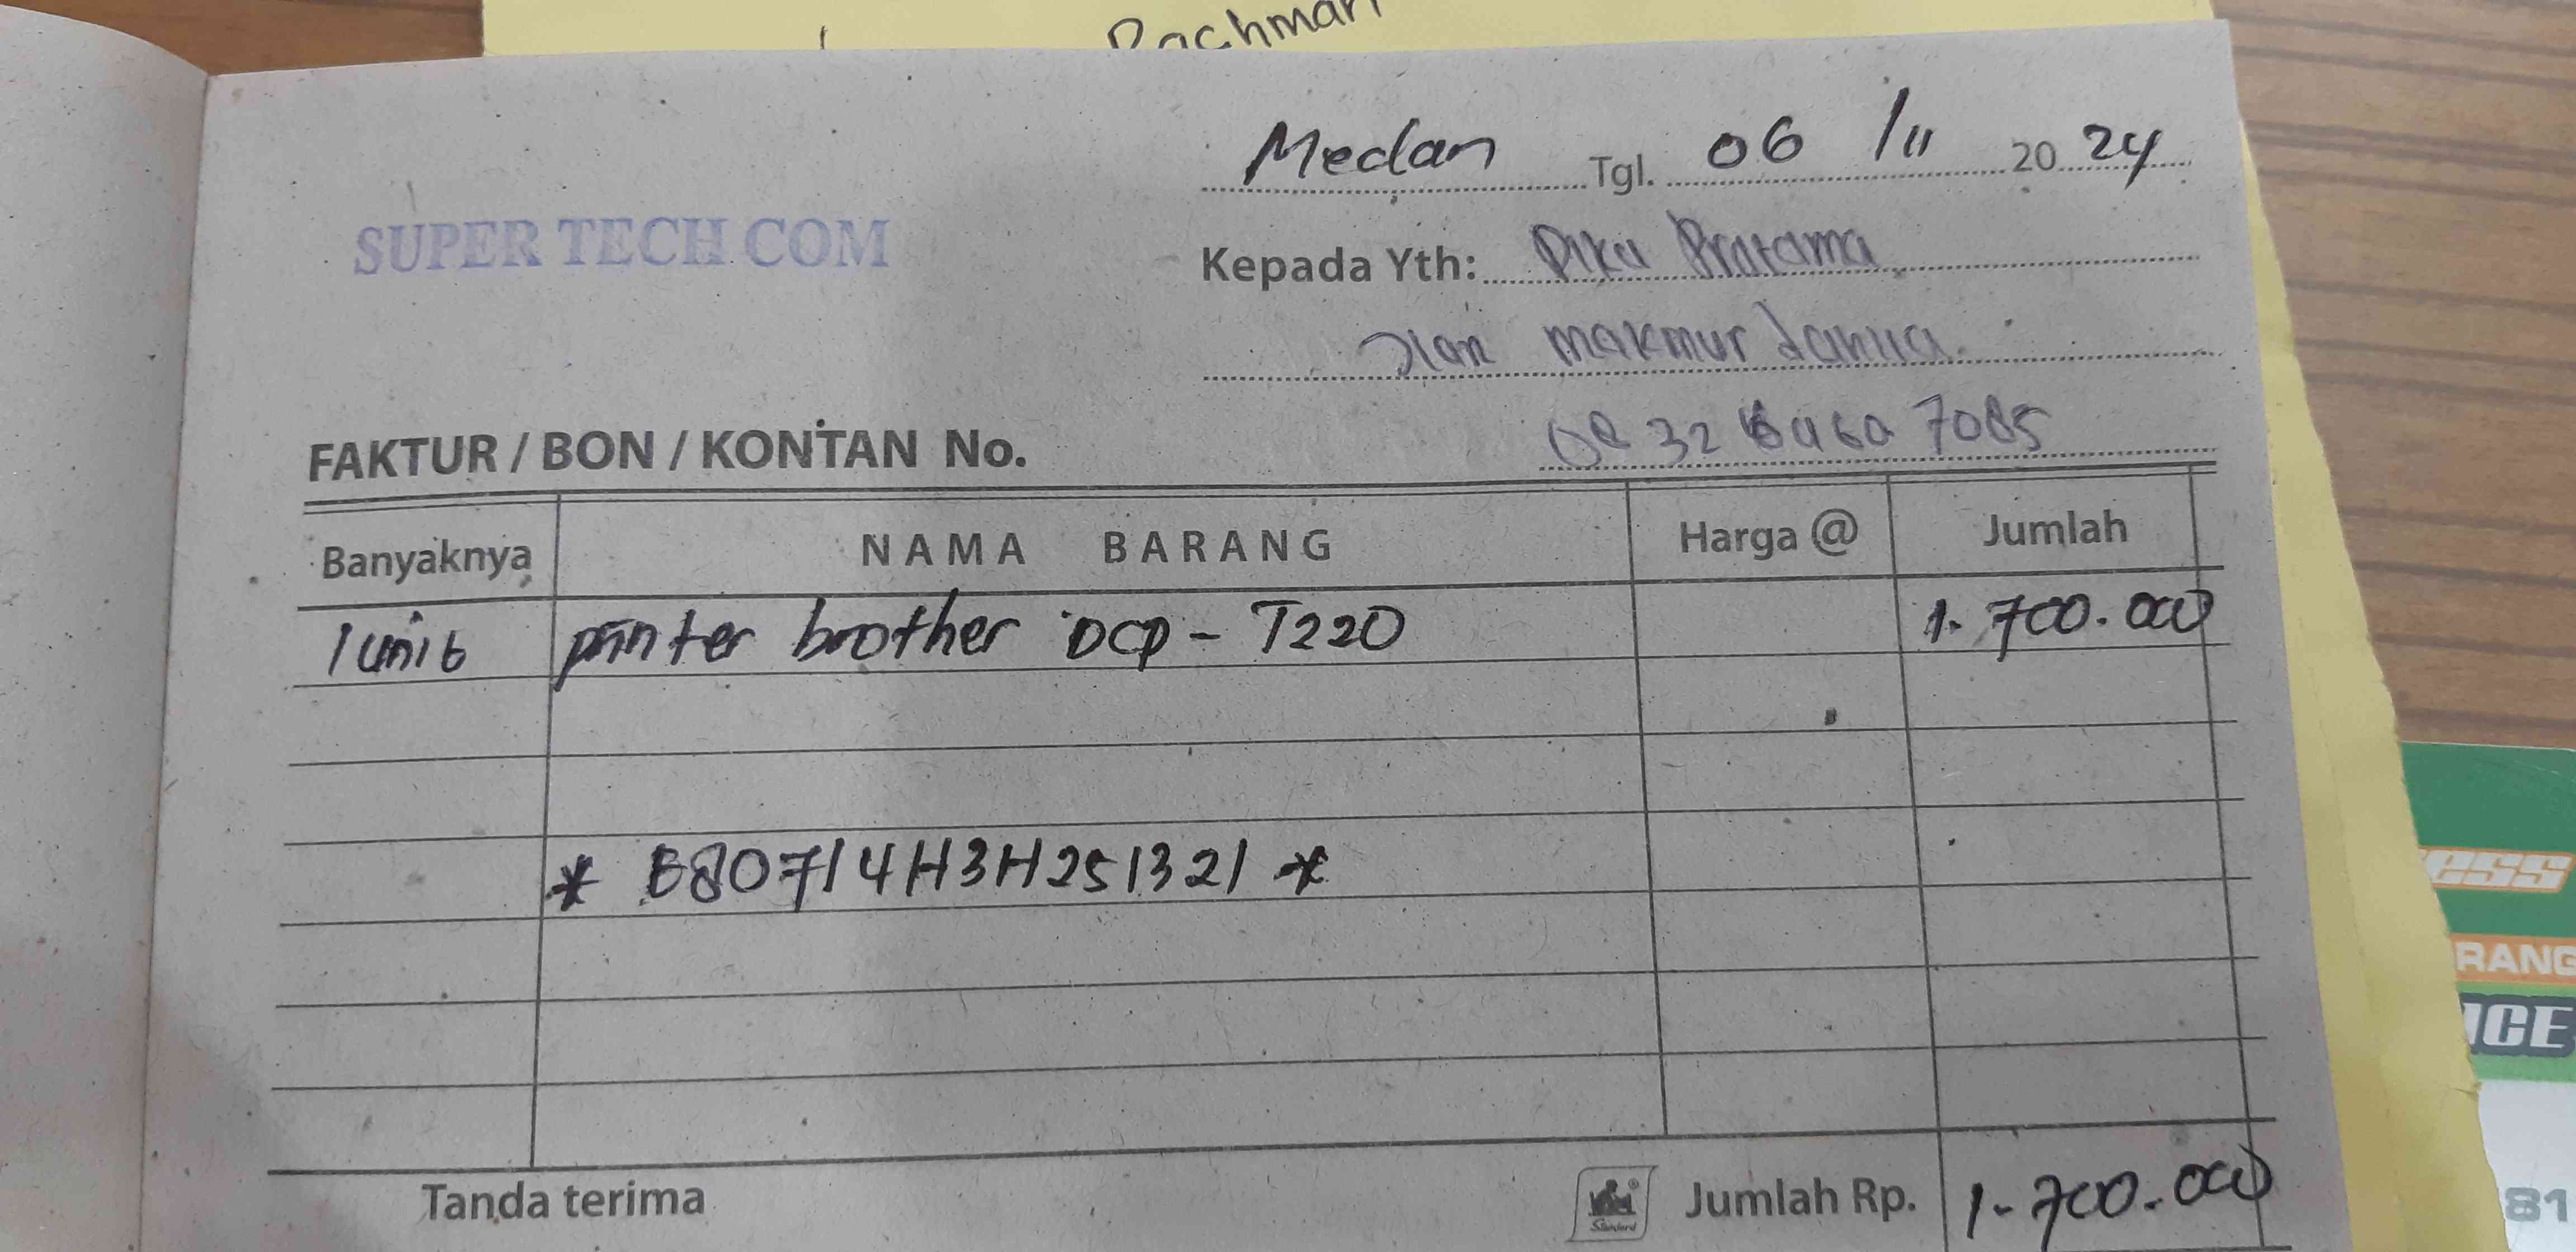 Rachman
Medan Tgl. 06 / 11 2024
SUPER TECH COM
Kepada Yth: Dika Pratama
Jlan makmur
FAKTUR / BON / KONTAN No.
Banyaknya NAMA BARANG Harga @ Jumlah
1 unit printer brother DCP - T220 1.700.000
* E80714H3H251321 *
Tanda terima Standard Jumlah Rp. 1.700.000
ESS
RANG
ICE
81